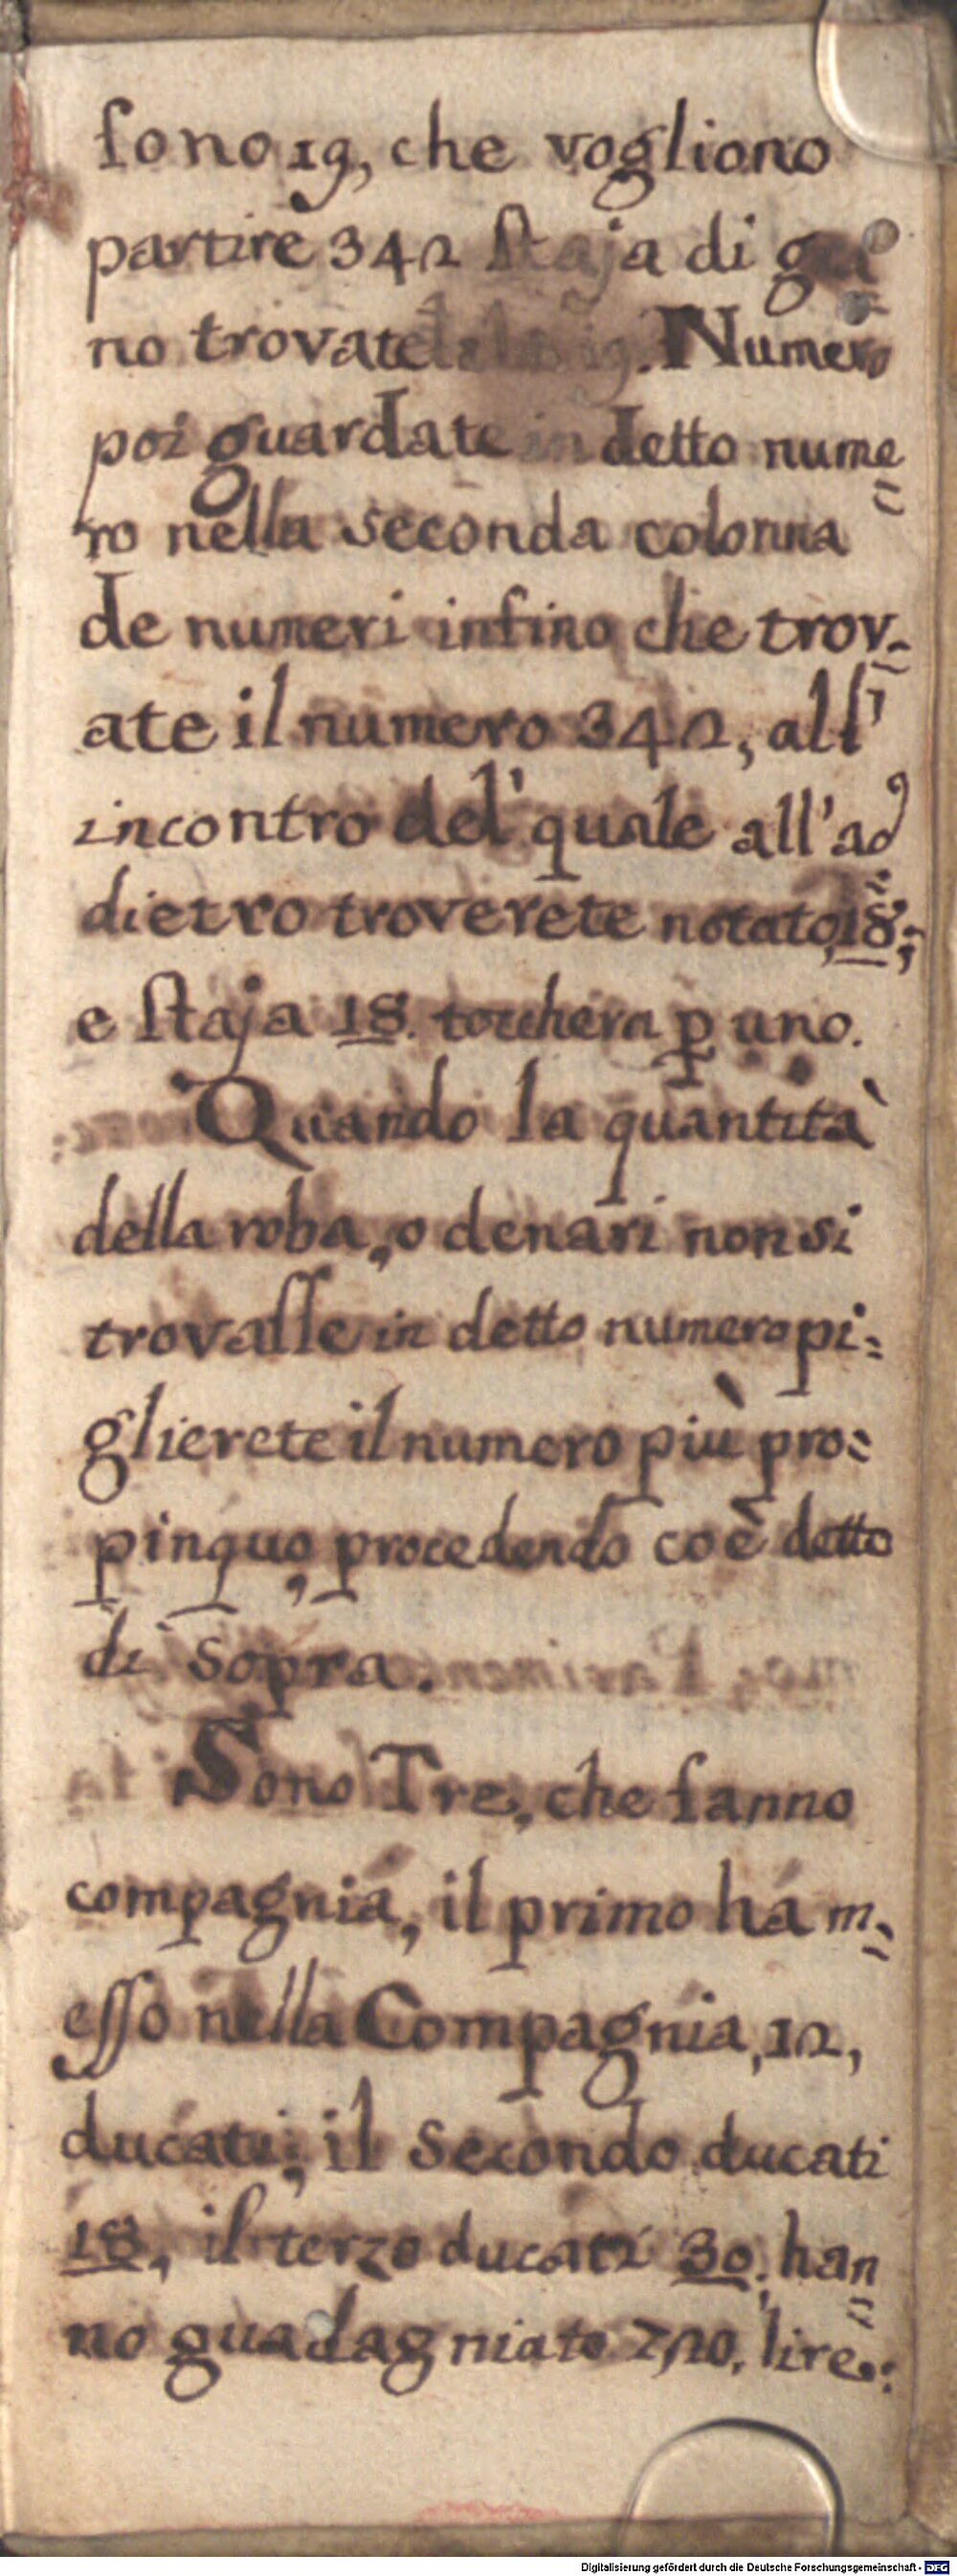 sono 19, che vogliono
partire 342 staja di gra
no trovate 19. Numero
poi guardate in detto nume
ro nella seconda colonna
de numeri infino che trov-
ate il numero 342, all'
incontro del' quale all'ad
dietro troverete notato, 18;
e staja 18. tocchera p uno.
Quando la quantità
della roba, o denari non si
trovasse in detto numero pi:
glierete il numero più pro:
pinquo, procedendo coè detto
di sopra.
Sono Tre, che fanno
compagniá, il primo há m-
esso nella Compagnia, 12,
ducati; il Secondo ducati
18, il terzo ducati 30, han
no guadagniato 720, lire:
Digitalisierung gefördert durch die Deutsche Forschungsgemeinschaft - DFG